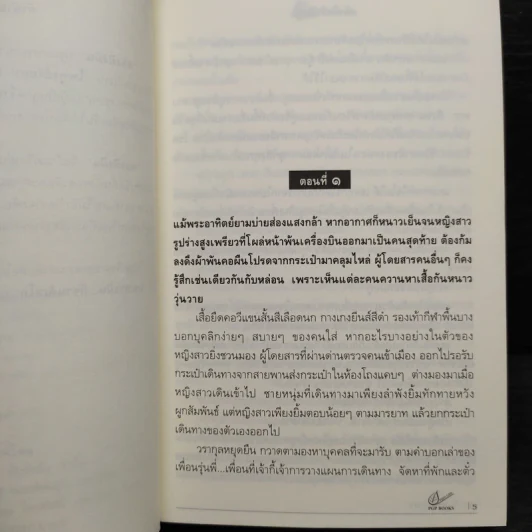 ตอนที่ ๑
แม้พระอาทิตย์ยามบ่ายส่องแสงกล้า หากอากาศก็หนาวเย็นจนหญิงสาว
รูปร่างสูงเพรียวที่โผล่หน้าพ้นเครื่องบินออกมาเป็นคนสุดท้าย ต้องก้ม
ลงดึงผ้าพันคอผืนโปรดจากกระเป๋ามาคลุมไหล่ ผู้โดยสารคนอื่นๆ ก็คง
รู้สึกเช่นเดียวกันกับหล่อน เพราะเห็นแต่ละคนควานหาเสื้อกันหนาว
วุ่นวาย
เสื้อยืดคอวีแขนสั้นสีเลือดนก กางเกงยีนส์สีดำ รองเท้ากีฬาพื้นบาง
บอกบุคลิกง่ายๆ สบายๆ ของคนใส่ หากอะไรบางอย่างในตัวของ
หญิงสาวยิ่งชวนมอง ผู้โดยสารที่ผ่านด่านตรวจคนเข้าเมือง ออกไปรอรับ
กระเป๋าเดินทางจากสายพานส่งกระเป๋าในห้องโถงแคบๆ ต่างมองมาเมื่อ
หญิงสาวเดินเข้าไป ชายหนุ่มที่เดินทางมาเพียงลำพังยิ้มทักทายหวัง
ผูกสัมพันธ์ แต่หญิงสาวเพียงยิ้มตอบน้อยๆ ตามมารยาท แล้วยกกระเป๋า
เดินทางของตัวเองออกไป
วรากุลหยุดยืน กวาดตามองหาบุคคลที่จะมารับ ตามคำบอกเล่าของ
เพื่อนรุ่นพี่...เพื่อนที่เจ้ากี้เจ้าการวางแผนการเดินทาง จัดหาที่พักและตั๋ว
5